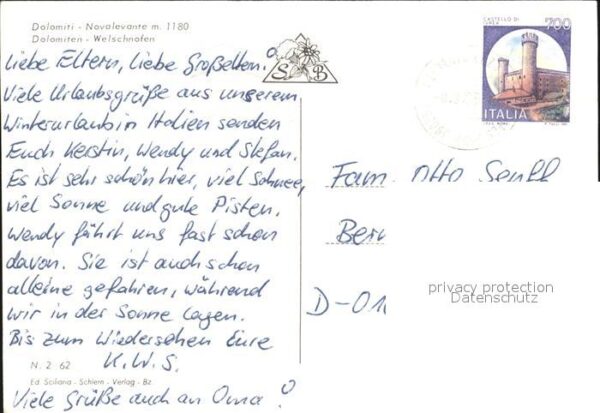 Dolomiti - Novalevante m. 1180
Dolomiten - Welschnofen
Liebe Eltern, liebe Großeltern!
Viele Urlaubsgrüße aus unserem
Winterurlaub in Italien senden
Euch Kerstin, Wendy und Stefan.
Es ist sehr schön hier, viel Schnee,
viel Sonne und gute Pisten.
Wendy fährt uns fast schon
davon. Sie ist auch schon
alleine gefahren, während
wir in der Sonne lagen.
Bis zum Wiedersehen Eure
K.W.S.
N. 2 62
Ed Sciliana - Schlern - Verlag - Bz.
Viele Grüße auch an Oma!
S B
CASTELLO DI
700
ITALIA
Fam. Otto
Bern
D-01
privacy protection
Datenschutz